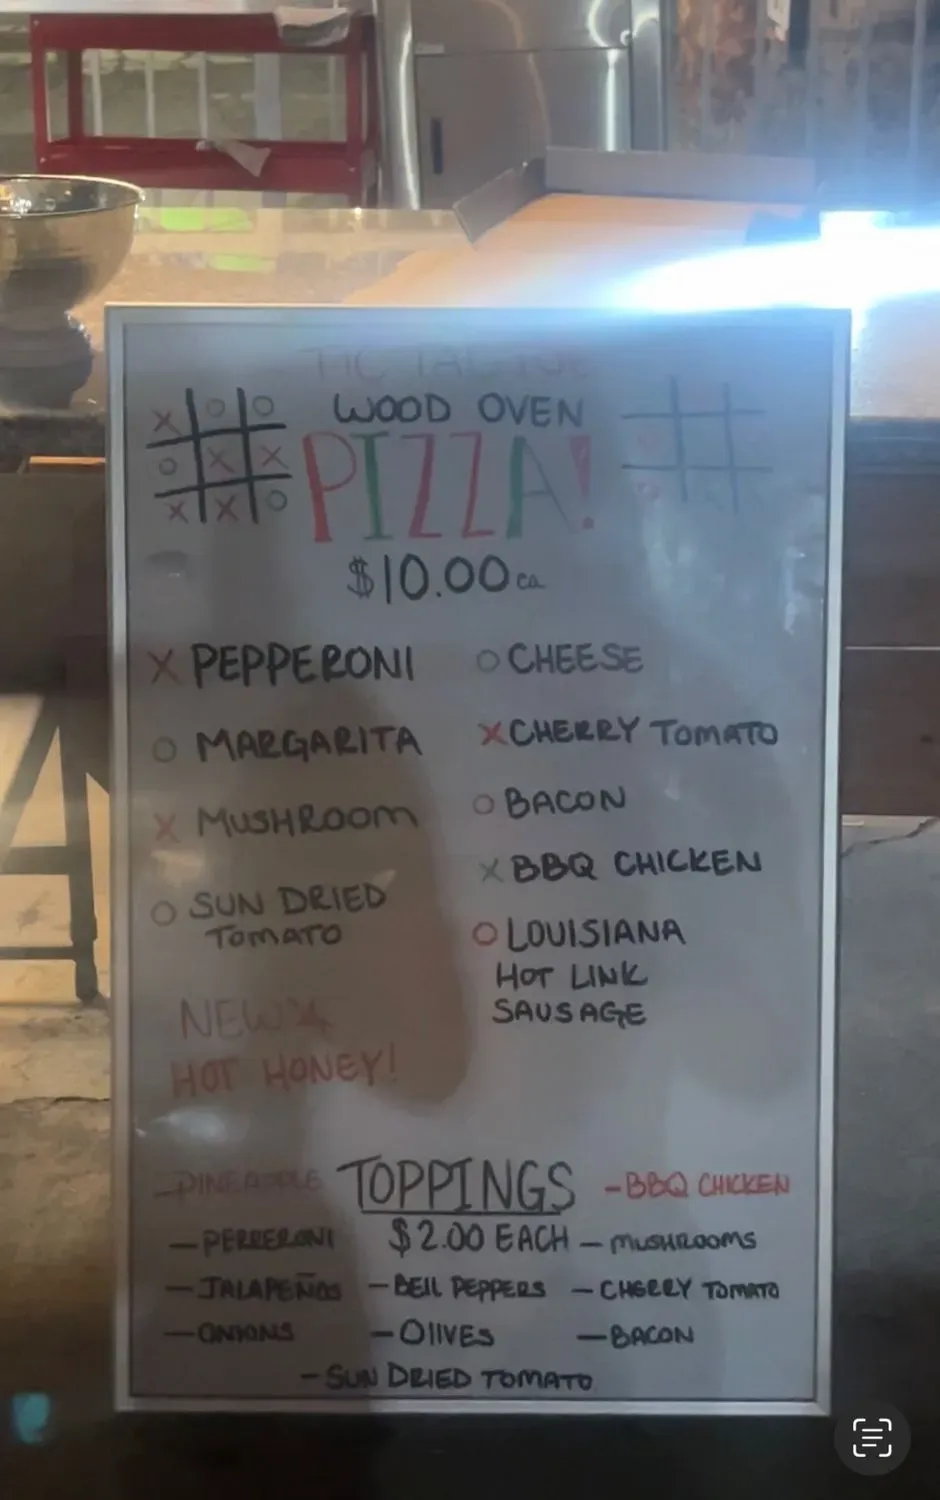 TIC TAC
WOOD OVEN
PIZZA!
$10.00 ea
X PEPPERONI
O MARGARITA
X MUSHROOM
O SUN DRIED
TOMATO
NEW
HOT HONEY!
O CHEESE
X CHERRY TOMATO
O BACON
X BBQ CHICKEN
O LOUISIANA
HOT LINK
SAUSAGE
TOPPINGS
$2.00 EACH
- PINEAPPLE
- PEPPERONI
- JALAPEÑOS
- ONIONS
- BELL PEPPERS
- OLIVES
- BBQ CHICKEN
- MUSHROOMS
- CHERRY TOMATO
- BACON
- SUN DRIED TOMATO